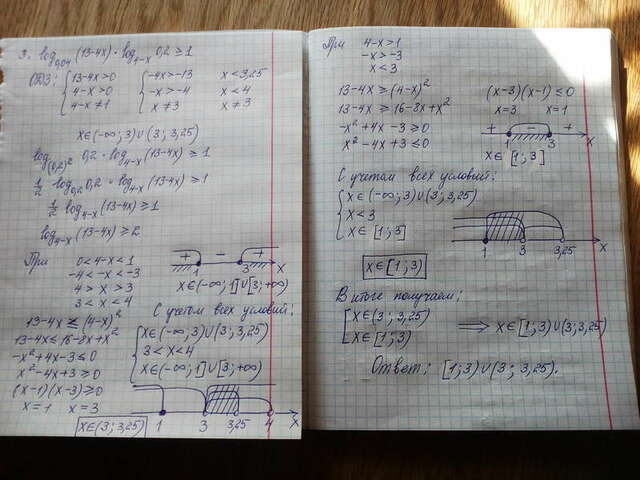 3. log₀,₀₄(13-4x)·log₄₋ₓ0,2≥1
ОДЗ: { 13-4x>0 { -4x>-13 x<3,25
4-x>0 -x>-4 x<4
4-x≠1 x≠3 x≠3
x∈(-∞;3)∪(3;3,25)
log₍₀,₂₎² 0,2·log₄₋ₓ(13-4x)≥1
1/2 log₀,₂0,2·log₄₋ₓ(13-4x)≥1
1/2 log₄₋ₓ(13-4x)≥1
log₄₋ₓ(13-4x)≥2
При 0<4-x<1
-4<-x<-3
4>x>3
3<x<4
13-4x≤(4-x)²
13-4x≤16-8x+x²
-x²+4x-3≤0
x²-4x+3≥0
(x-1)(x-3)≥0
x=1 x=3
+ - +
1 3 x
x∈(-∞;1]∪[3;+∞)
С учетом всех условий:
{ x∈(-∞;3)∪(3;3,25)
3<x<4
x∈(-∞;1]∪[3;+∞)
1 3 3,25 4 x
x∈(3;3,25)
При 4-x>1
-x>-3
x<3
13-4x≥(4-x)²
13-4x≥16-8x+x²
-x²+4x-3≥0
x²-4x+3≤0
(x-3)(x-1)≤0
x=3 x=1
+ - +
1 3 x
x∈[1;3]
С учетом всех условий:
{ x∈(-∞;3)∪(3;3,25)
x<3
x∈[1;3]
1 3 3,25 x
x∈[1;3)
В итоге получаем:
[ x∈(3;3,25)
x∈[1;3)
⟹ x∈[1;3)∪(3;3,25)
Ответ: [1;3)∪(3;3,25).